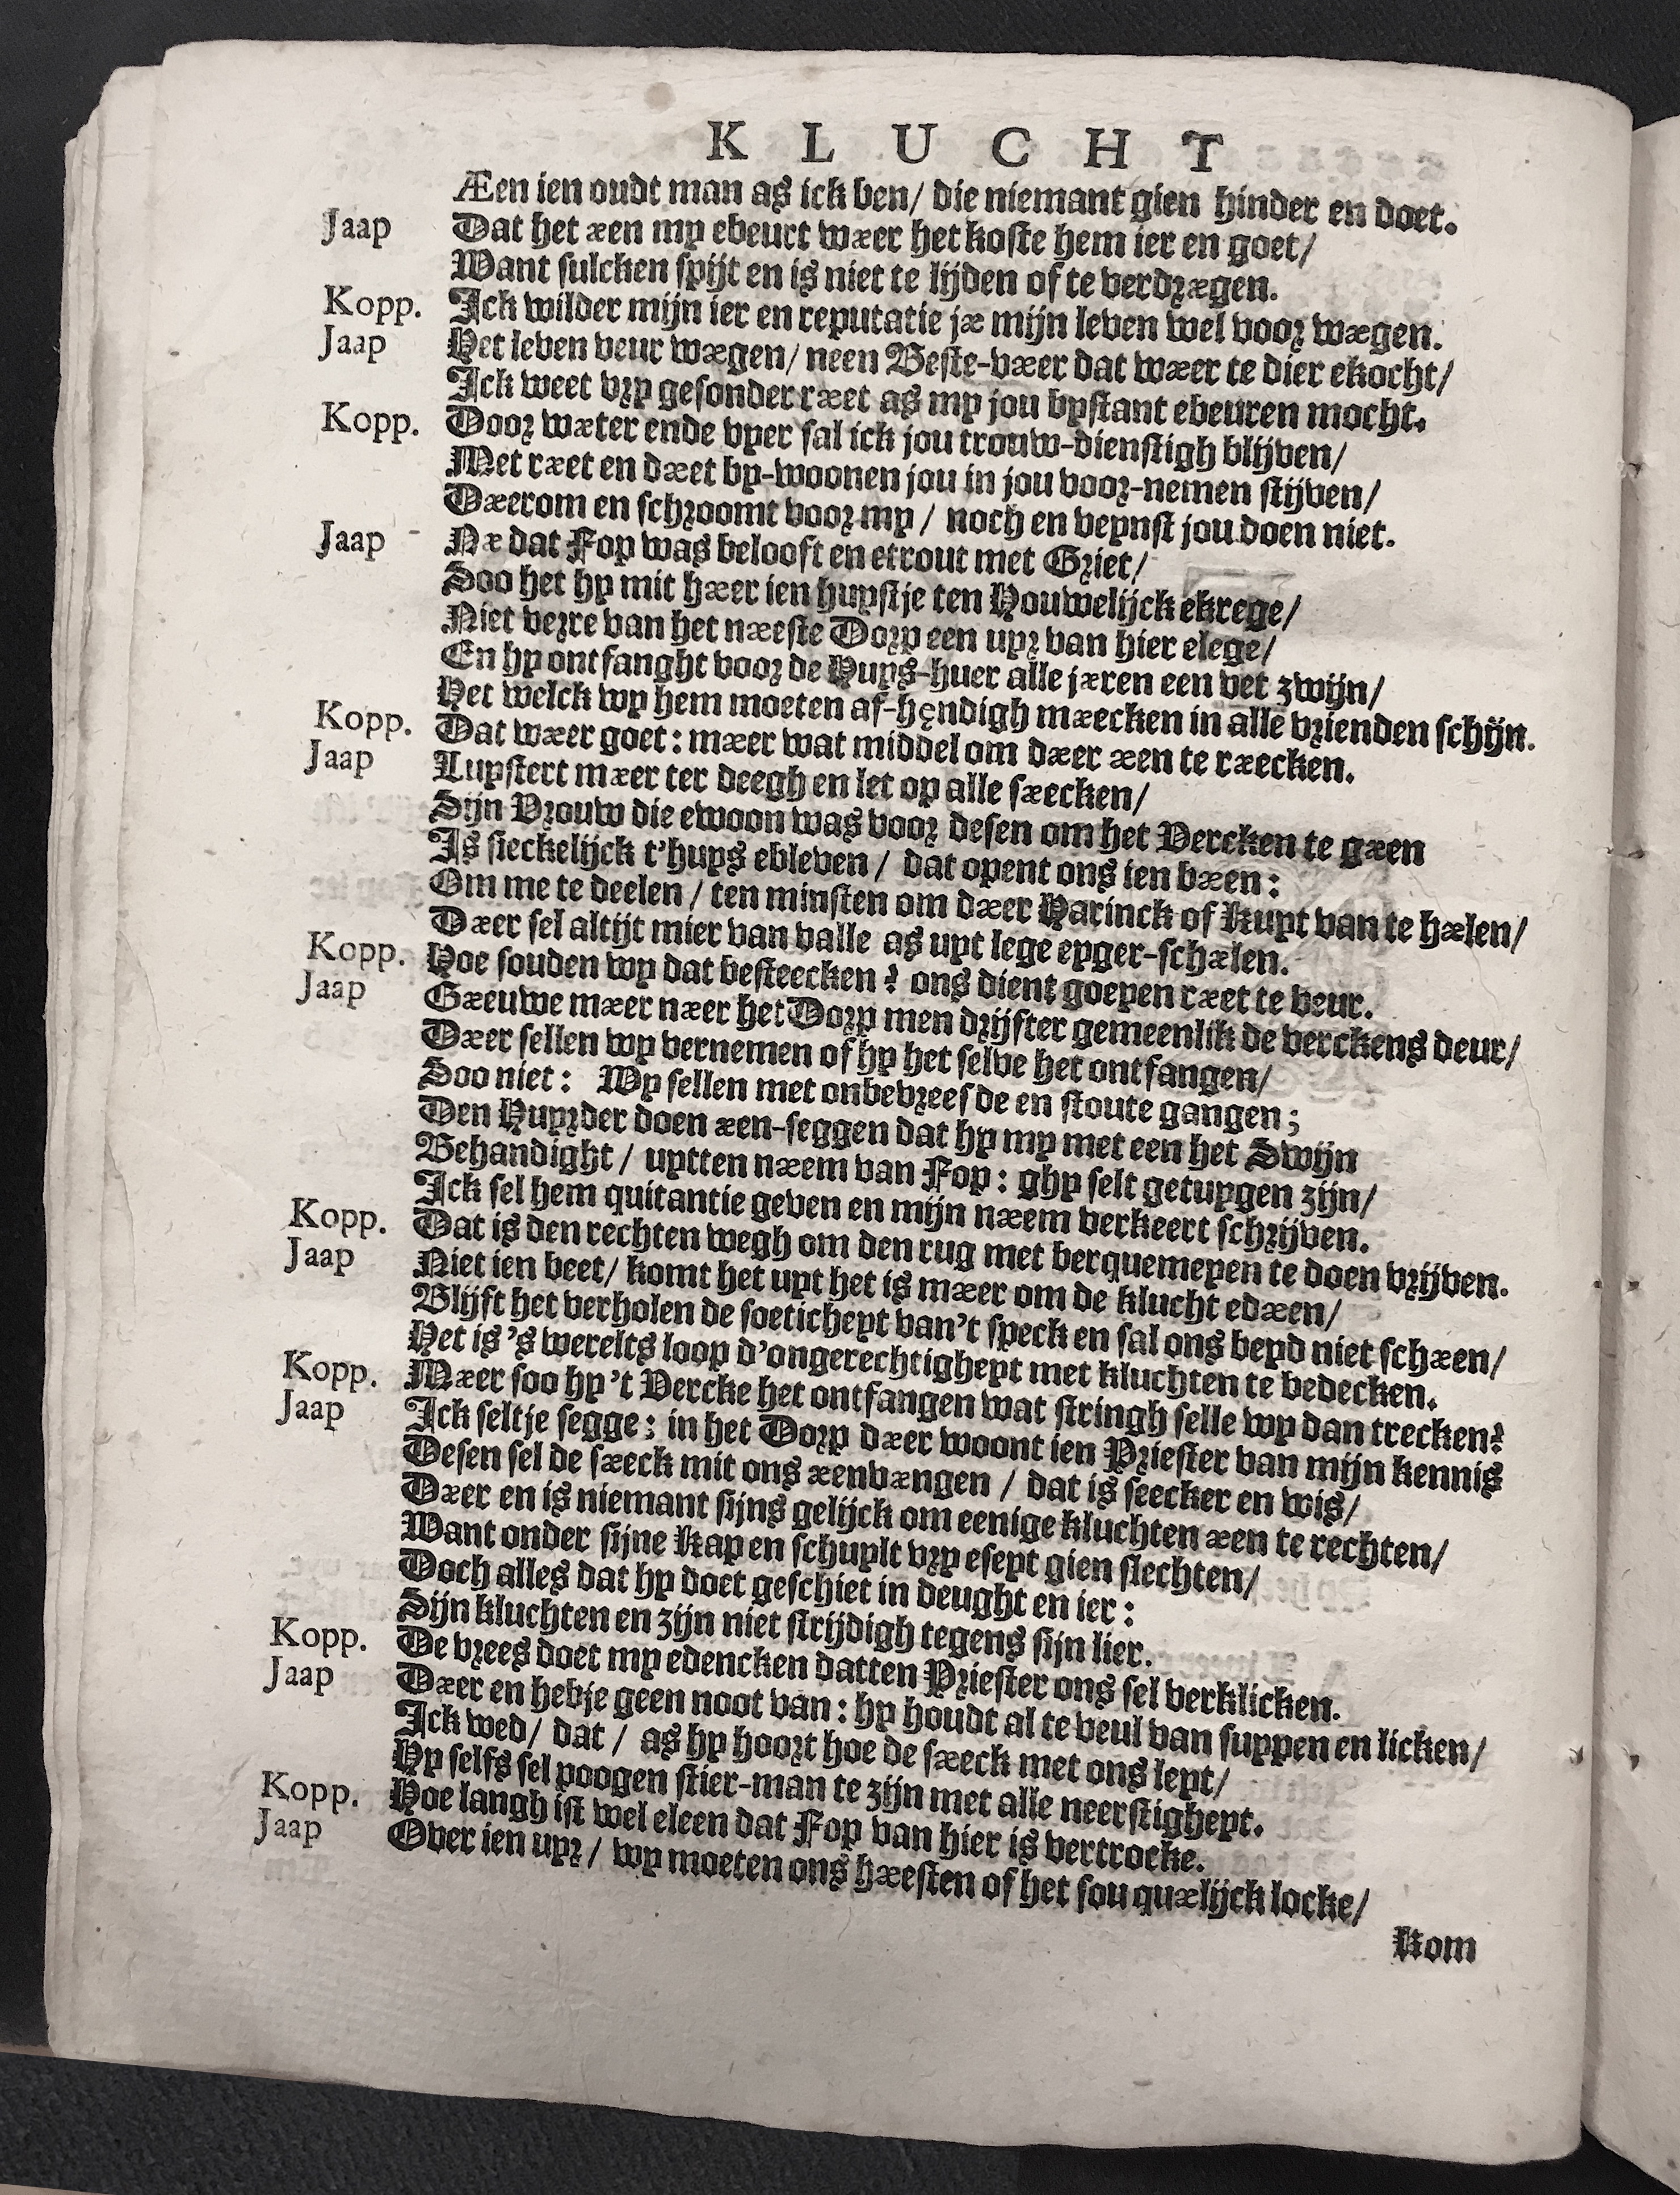 KLUCHT
Æen ien oudt man as ick ben/ die niemant gien hinder en doet.
Jaap Dat het æen my ebeurt wær het koste hem ier en goet/
Want sulcken spijt en is niet te lijden of te verdrægen.
Kopp. Ick wilder mijn ier en reputatie jæ mijn leven wel voor wægen.
Jaap Het leven veur wægen/ neen Beste-væer dat wæer te dier ekocht/
Ick weet vry gesonder ræet as my jou bystant ebeuren mocht.
Kopp. Door wæter ende vyer sal ick jou trouw-dienstigh blijven/
Met ræet en dæet by-woonen jou in jou voor-nemen stijven/
Dæerom en schroomt voor my / noch en veynst jou doen niet.
Jaap Næ dat Fop was belooft en etrout met Griet/
Soo het hy mit hæer ien huystje ten Houwelijck ekrege/
Niet verre van het næeste Dorp een uyr van hier elege/
En hy ontfanght voor de Huys-huer alle jæren een vet zwijn/
Het welck wy hem moeten af-hendigh mæecken in alle vrienden schijn.
Kopp. Dat wæer goet: mæer wat middel om dæer æen te ræecken.
Jaap Luystert mæer ter deegh en let op alle sæecken/
Sijn Vrouw die ewoon was voor desen om het Vercken te gæen
Is sieckelijck t'huys ebleven / dat opent ons ien bæen:
Om me te deelen / ten minsten om dæer Harinck of Kuyt van te hælen/
Dæer sel altijt mier van valle as uyt lege eyger-schælen.
Kopp. Hoe souden wy dat besteecken? ons dient goeyen ræet te veur.
Jaap Gæeuwe mæer næer het Dorp men drijfter gemeenlik de verckens deur/
Dæer sellen wy vernemen of hy het selve het ontfangen/
Soo niet: Wy sellen met onbevreesde en stoute gangen;
Den Huyrder doen æen-seggen dat hy my met een het Swijn
Behandight / uytten næem van Fop: ghy selt getuygen zijn/
Ick sel hem quitantie geven en mijn næem verkeert schrijven.
Kopp. Dat is den rechten wegh om den rug met berquemeyen te doen vrijven.
Jaap Niet ien beet/ komt het uyt het is mæer om de klucht edæen/
Blijft het verholen de soeticheyt van't speck en sal ons beyd niet schæen/
Het is 's werelts loop d'ongerechtigheyt met kluchten te bedecken.
Kopp. Mæer soo hy 't Vercke het ontfangen wat stringh selle wy dan trecken?
Jaap Ick seltje segge; in het Dorp dæer woont ien Priester van mijn kennis
Desen sel de sæeck mit ons æenvængen / dat is seecker en wis/
Dæer en is niemant sijns gelijck om eenige kluchten æen te rechten/
Want onder sijne Kap en schuylt vry eseyt gien slechten/
Doch alles dat hy doet geschiet in deught en ier:
Sijn kluchten en zijn niet strijdigh tegens sijn lier.
Kopp. De vrees doet my edencken datten Priester ons sel verklicken.
Jaap Dæer en hebje geen noot van: hy houdt al te veul van suypen en licken/
Ick wed/ dat / as hy hoort hoe de sæeck met ons leyt/
Hy selfs sel poogen stier-man te zijn met alle neerstigheyt.
Kopp. Hoe langh ist wel eleen dat Fop van hier is vertrocke.
Jaap Over ien uyr/ wy moeten ons hæesten of het sou quælijck locke/
Kom